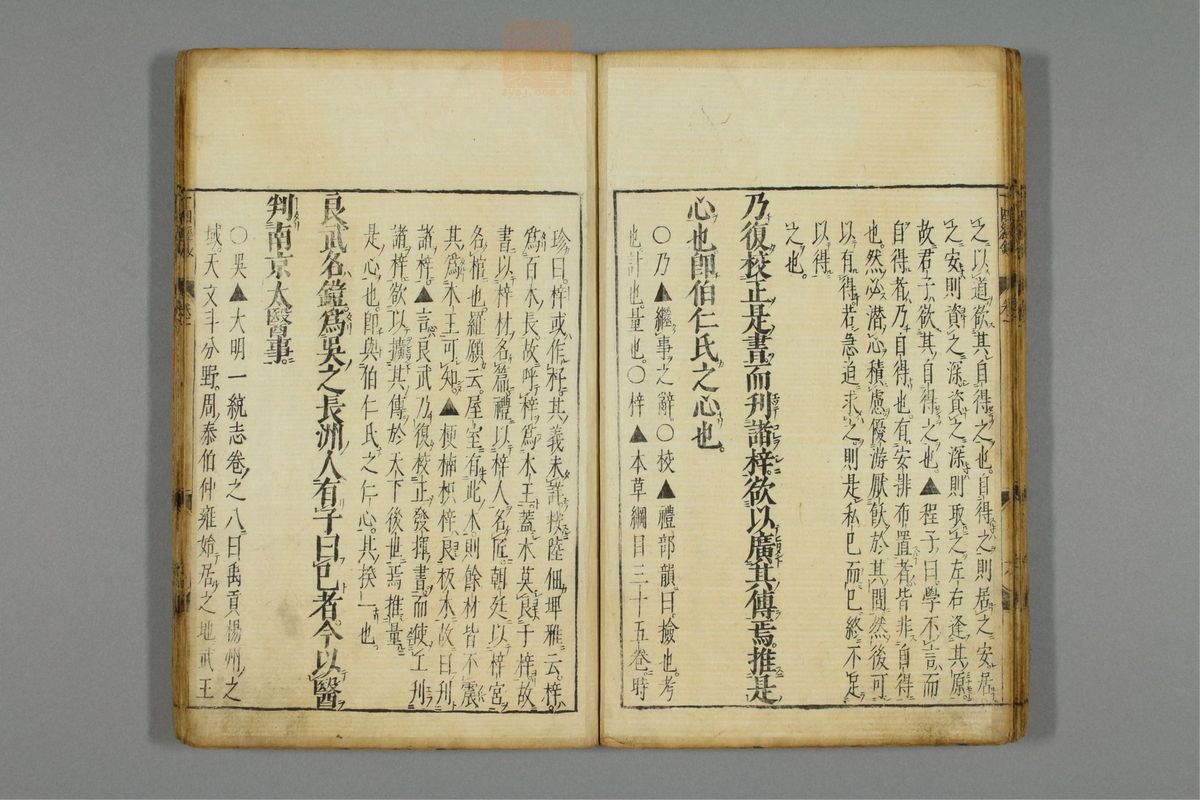 之以道欲其自得之也自得之則居之安居
之安則資之深資之深則取之左右逢其原
故君子欲其自得之也▲程子曰學不言而
自得者乃自得也有安排布置者皆非自得
也然必潛心積慮優游厭飫於其間然後可
以有得若急迫求之則是私己而已終不足
以得
之也
乃復校正是書而刊諸梓欲以廣其傳焉推是
心也卽伯仁氏之心也
〇乃▲繼事之辭〇校▲禮部韻曰撿也考
也計也量也〇梓▲本草綱目三十五卷時
珍曰梓或作杍其義未詳按陸佃埤雅云梓
爲百木長故呼梓爲木王蓋木莫良于梓故
書以梓材名篇禮以梓人名匠朝廷以梓宮
名棺也羅願云屋室有此木則餘材皆不震
其爲木王可知▲梗楠枳梓良板木故曰刊
諸梓▲言良武乃復校正發揮書而使工刊
諸梓欲以擴其傳於天下後世焉推量
是心也卽與伯仁氏之仁心其揆一也
良武名鎧爲吳之長洲人有子曰己者今以醫
判南京太醫事
〇吳▲大明一統志卷之八曰禹貢揚州之
域天文斗分野周泰伯仲雍始居之地武王